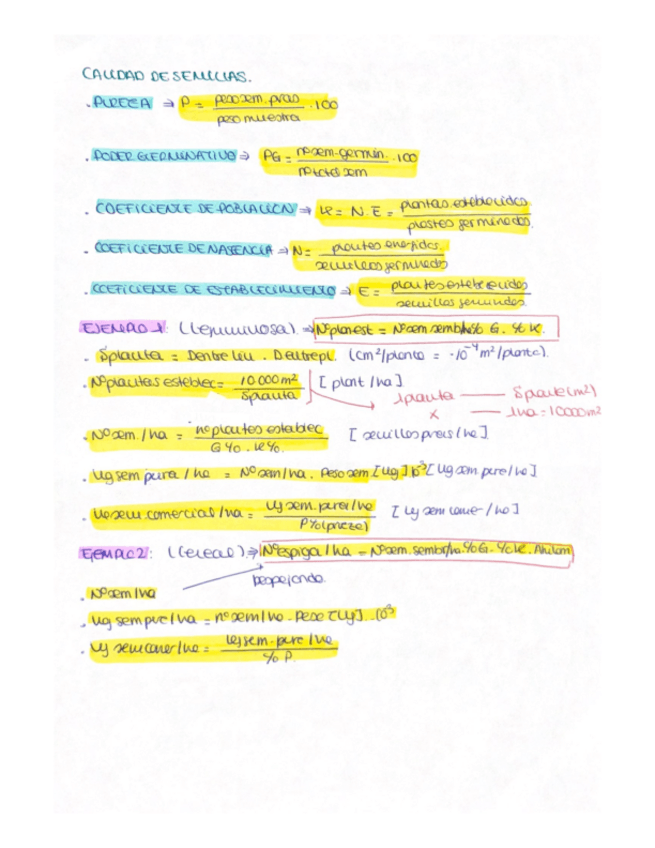 CALIDAD DE SEMILLAS.
. PUREZA ⇒ P = peso sem. puras / peso muestra · 100
. PODER GERMINATIVO ⇒ PG = nº sem. germin. / nº total sem · 100
. COEFICIENTE DE POBLACIÓN ⇒ K = N · E = plantas establecidas / plantas germinadas.
. COEFICIENTE DE NASCENCIA ⇒ N = plantas emergidas. / semillas germinada
. COEFICIENTE DE ESTABLECIMIENTO ⇒ E = plantas establecidas / semillas
EJEMPLO 1: (leguminosa). ⇒ Nº plan est = Nº sem semb/ha · % G. % K.
. Splanta = Dentre lin. Dentre pl. (cm²/planta = ·10⁻⁴ m²/planta).
. Nº plantas establec = 10 000 m² / Splanta [plant/ha]
1 planta — Splanta (m²)
x — 1 ha = 10000 m²
. Nº sem. / ha = nº plantas establec / G % . K %. [semillas puras / ha]
. Kg sem pura / ha = Nº sem / ha . Peso sem [kg] 10⁻³ [kg sem pure / ha]
. sem. comercial / ha = kg sem. pura / ha / P % (pureza) [kg sem come / ha]
EJEMPLO 2: (Cereal) ⇒ Nº espiga / ha = Nº sem. semb/ha · % G · % K. Ahijam
Despejando.
. Nº sem / ha
. Kg sem pur / ha = nº sem / ha · Peso [kg] . 10⁻³
. Kg sem comer / ha = kg sem. pure / ha / % P.